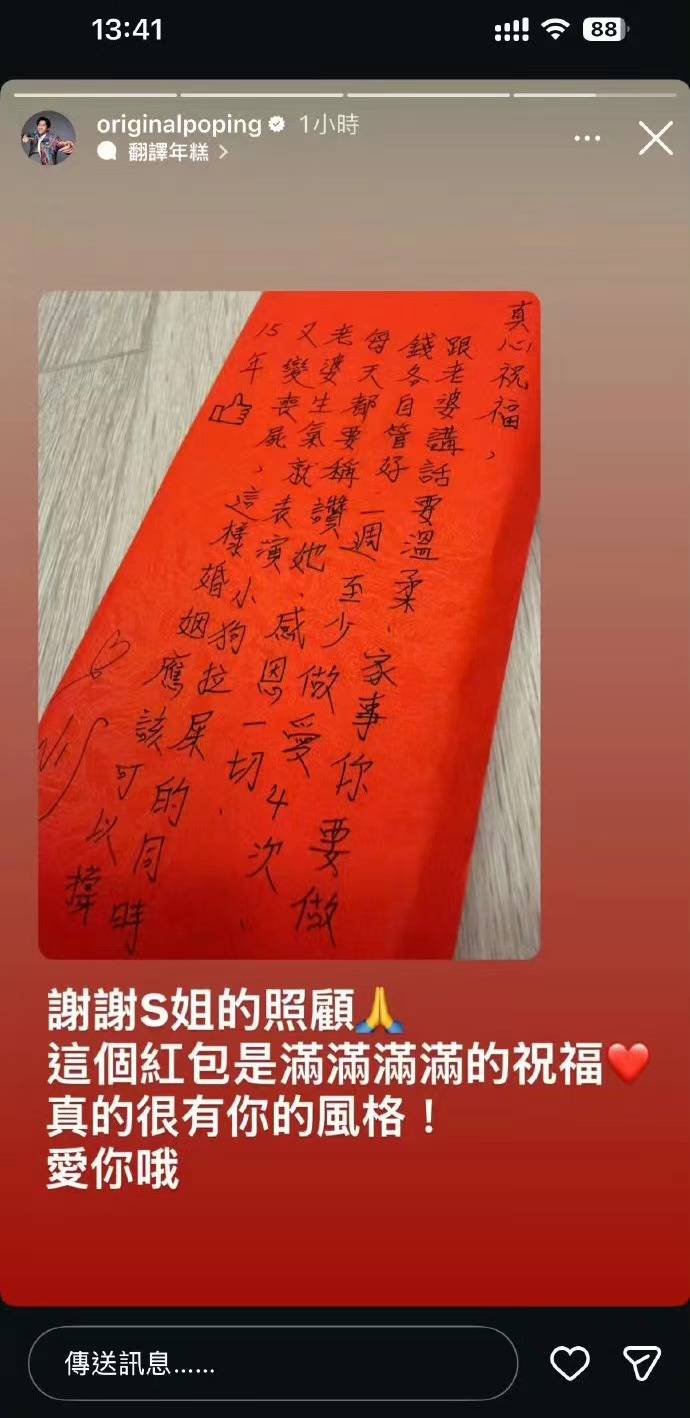 13:41
88
originalpoping 1小時
翻譯年糕
真心祝福,
跟老婆講話要溫柔、家事你要做
錢各自管好 一週至少做愛4次、
每天都要稱讚她、感恩一切、
老婆生氣就表演小狗拉屎的同時
又變喪屍,這樣婚姻應該可以撐
15年
謝謝S姐的照顧🙏
這個紅包是滿滿滿滿的祝福❤️
真的很有你的風格！
愛你哦
傳送訊息……